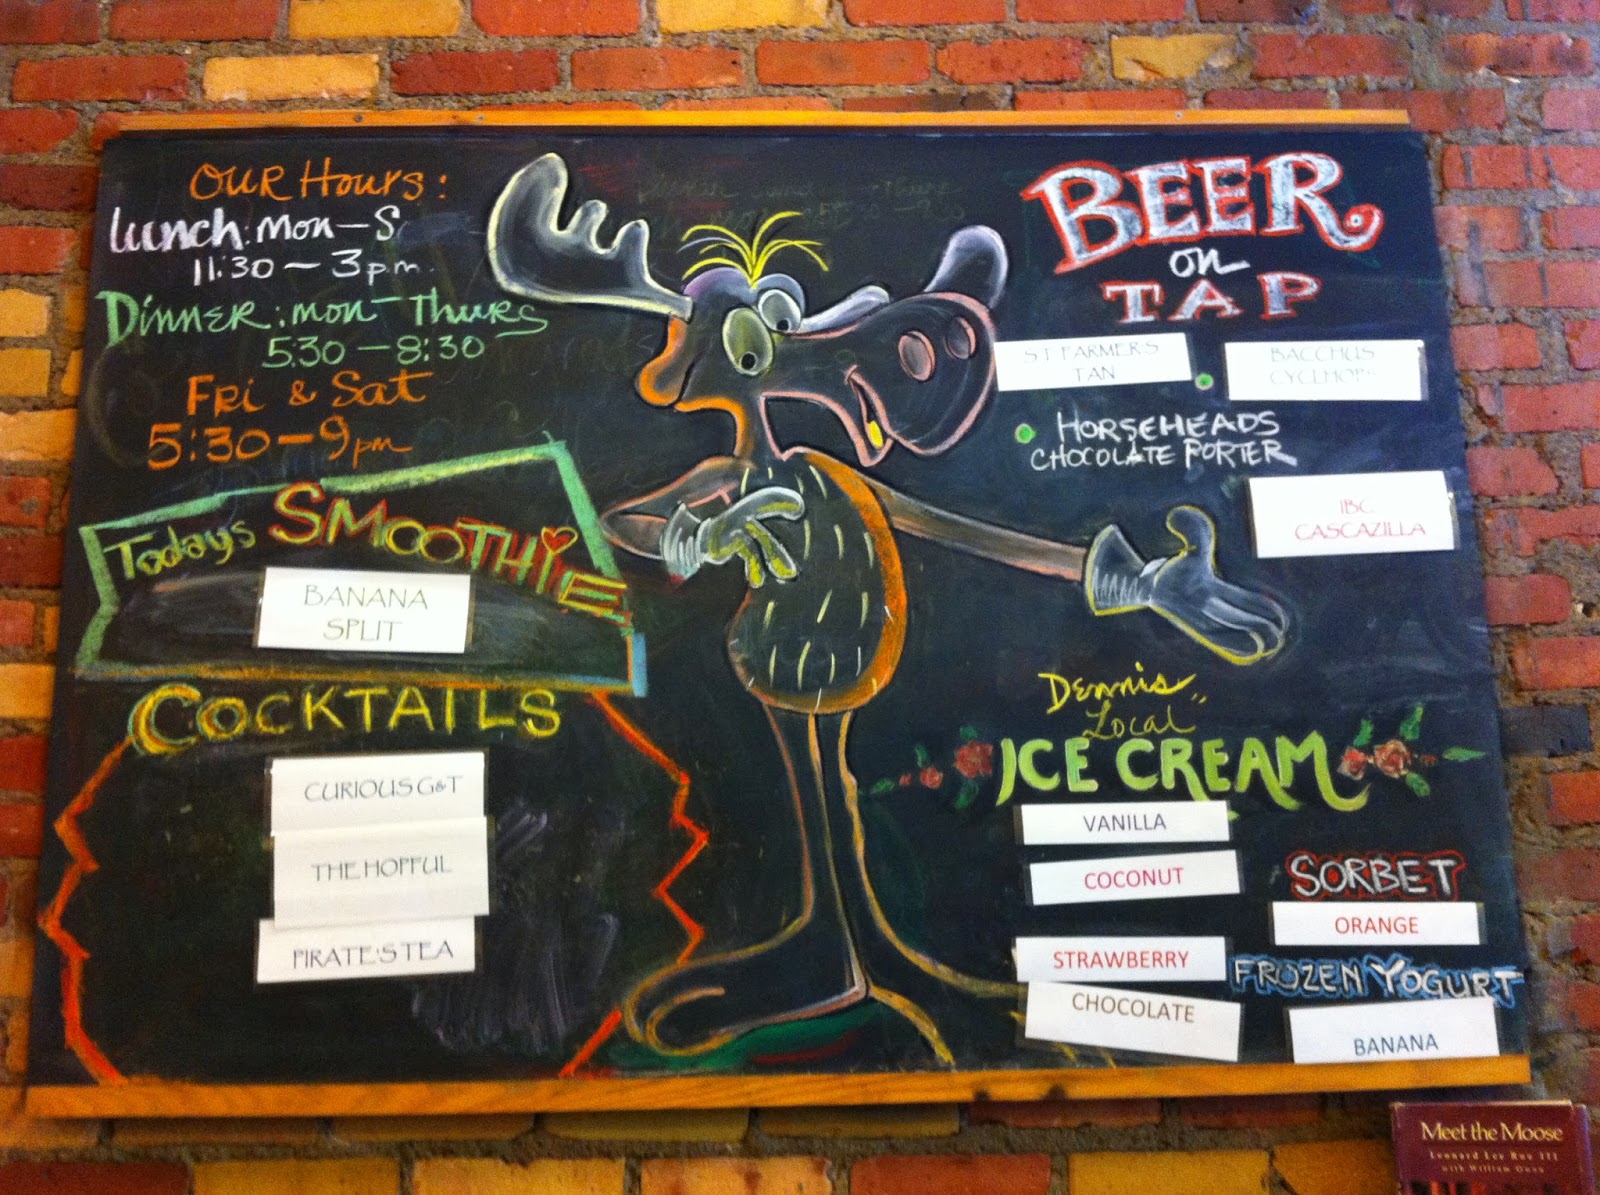 OUR HOURS:
LUNCH: MON-S
11:30 - 3pm.
DINNER: MON - THURS
5:30 - 8:30
FRI & SAT
5:30 - 9pm
Todays SMOOTHIE
BANANA
SPLIT
COCKTAILS
CURIOUS G&T
THE HOPFUL
PIRATE'S TEA
BEER
on
TAP
ST FARMERS
TAN
BACCHUS
CYCLHOPS
HORSEHEADS
CHOCOLATE PORTER
IBC
CASCAZILLA
Dennis
Local
ICE CREAM
VANILLA
COCONUT
STRAWBERRY
CHOCOLATE
SORBET
ORANGE
FROZEN YOGURT
BANANA
Meet the Moose
Leonard Lee Rue III
with William Owen